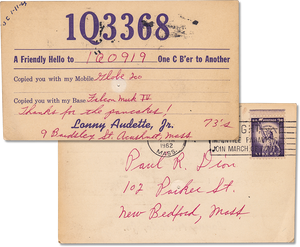 1Q3368
A Friendly Hello to 1Q0919 One C B'er to Another
Copied you with my Mobile Globe 200
Copied you with my Base Telson Mark IV
Thanks for the pancakes!
Lanny Audette, Jr. 73's
9 Bardsley St. Acushnet, Mass.
1962
MASS.
JOIN MARCH
Paul R. Dion
102 Parker St.
New Bedford, Mass.